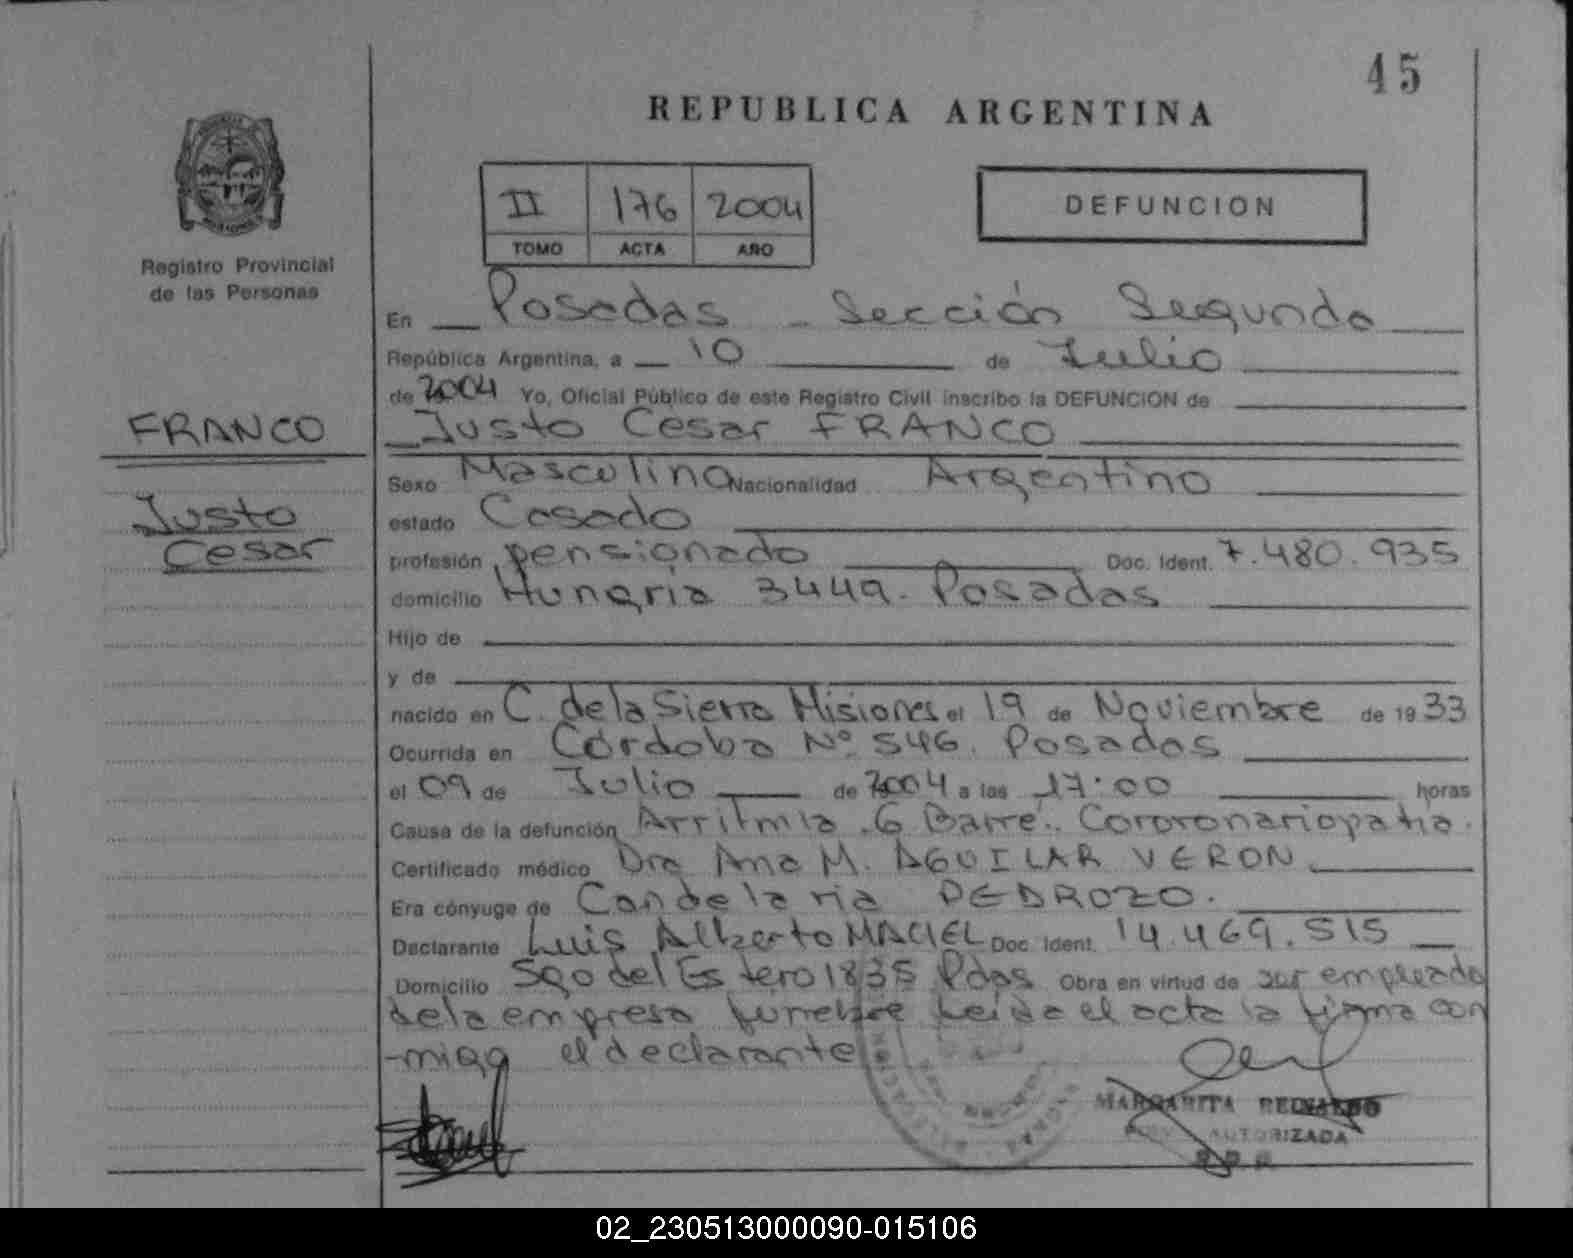 45
REPUBLICA ARGENTINA
II 176 2004
TOMO ACTA AÑO
DEFUNCION
Registro Provincial
de las Personas
En Posadas - Sección Segunda
República Argentina, a 10 de Julio
de 2004 Yo, Oficial Público de este Registro Civil inscribo la DEFUNCION de
FRANCO
Justo Cesar FRANCO
Sexo Masculino Nacionalidad Argentino
Justo
estado Casado
Cesar
profesión pensionado Doc. Ident. 7.480.935
domicilio Hungria 3449. Posadas
Hijo de
y de
nacido en C. de la Sierra Misiones el 19 de Noviembre de 1933
Ocurrida en Córdoba Nº 546. Posadas
el 09 de Julio de 2004 a las 17:00 horas
Causa de la defunción Arritmia. G Barre. Cororonariopatia.
Certificado médico Dra Ana M. AGUILAR VERON
Era cónyuge de Candelaria PEDROZO.
Declarante Luis Alberto MACIEL Doc. Ident. 14.469.515
Domicilio Sgo del Estero 1835 Pdas Obra en virtud de ser empleado
de la empresa funebre Leida el acta la firma con
-migo el declarante
MARGARITA REINALDO
AUTORIZADA
02_230513000090-015106